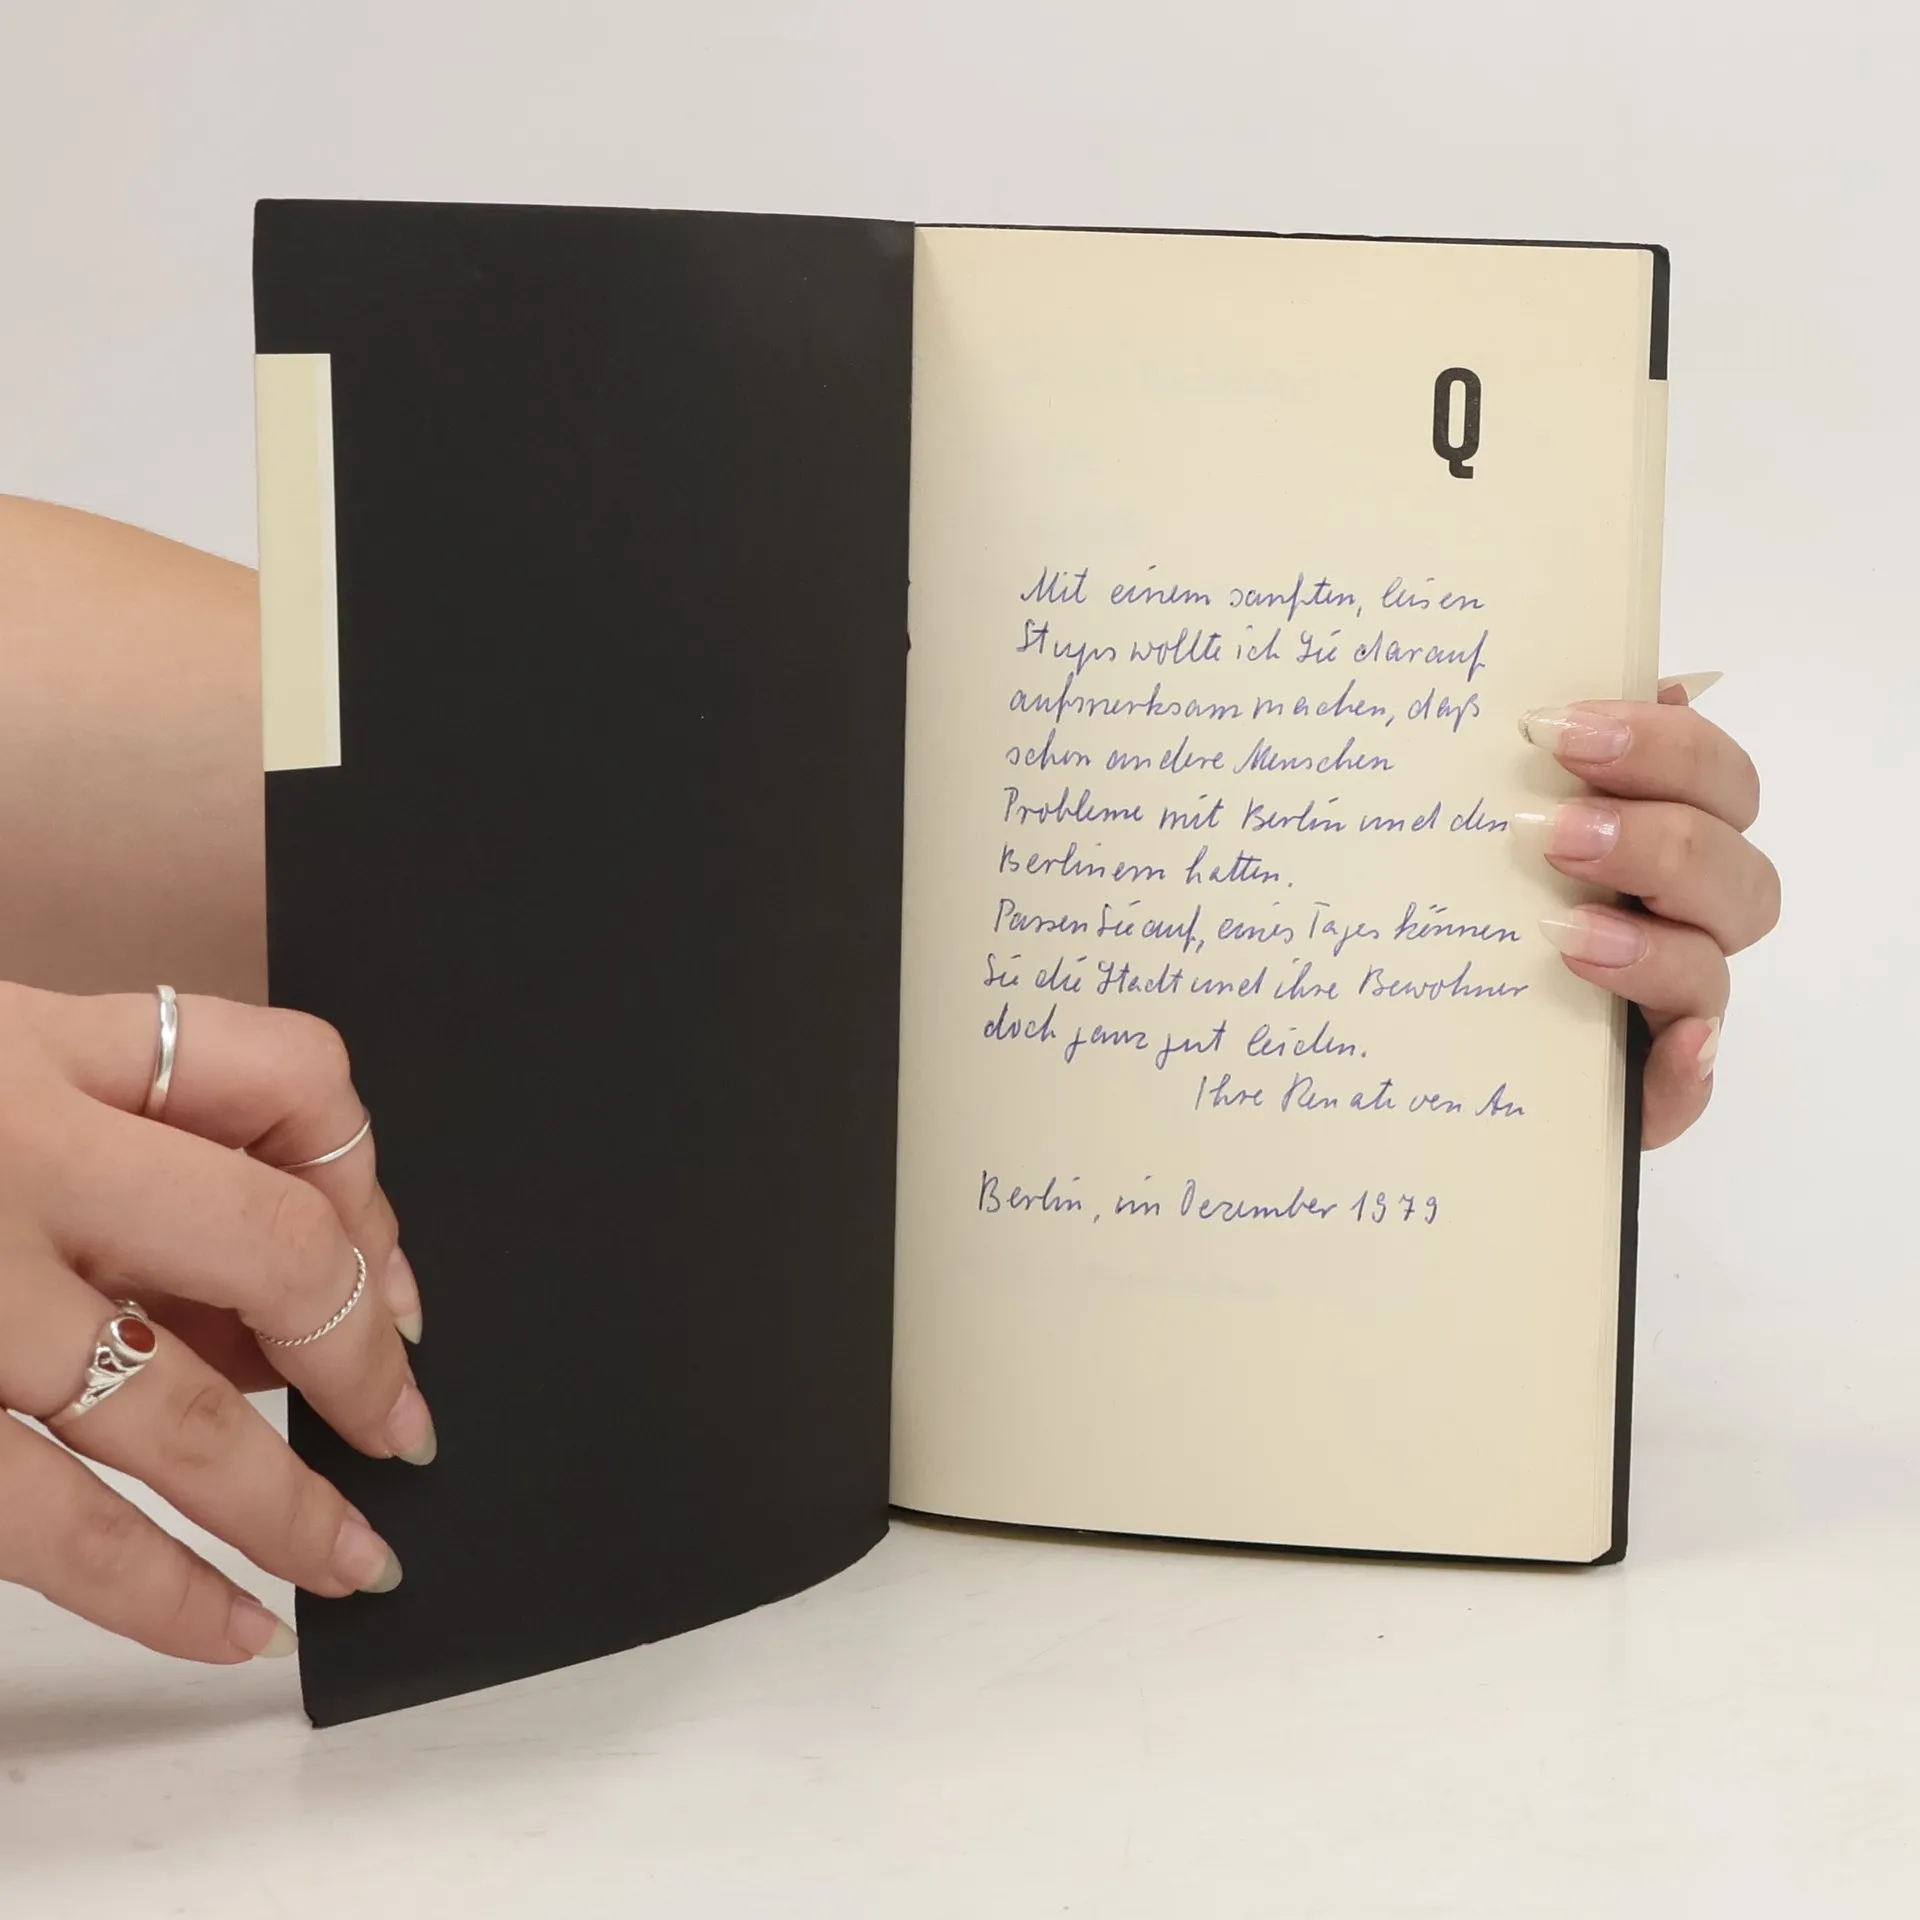 Q
Mit einem sanften, leisen
Stups wollte ich Sie darauf
aufmerksam machen, daß
schon andere Menschen
Probleme mit Berlin und den
Berlinern hatten.
Passen Sie auf, eines Tages können
Sie die Stadt und ihre Bewohner
doch ganz gut leiden.
Ihre Renate von An
Berlin, im Dezember 1979